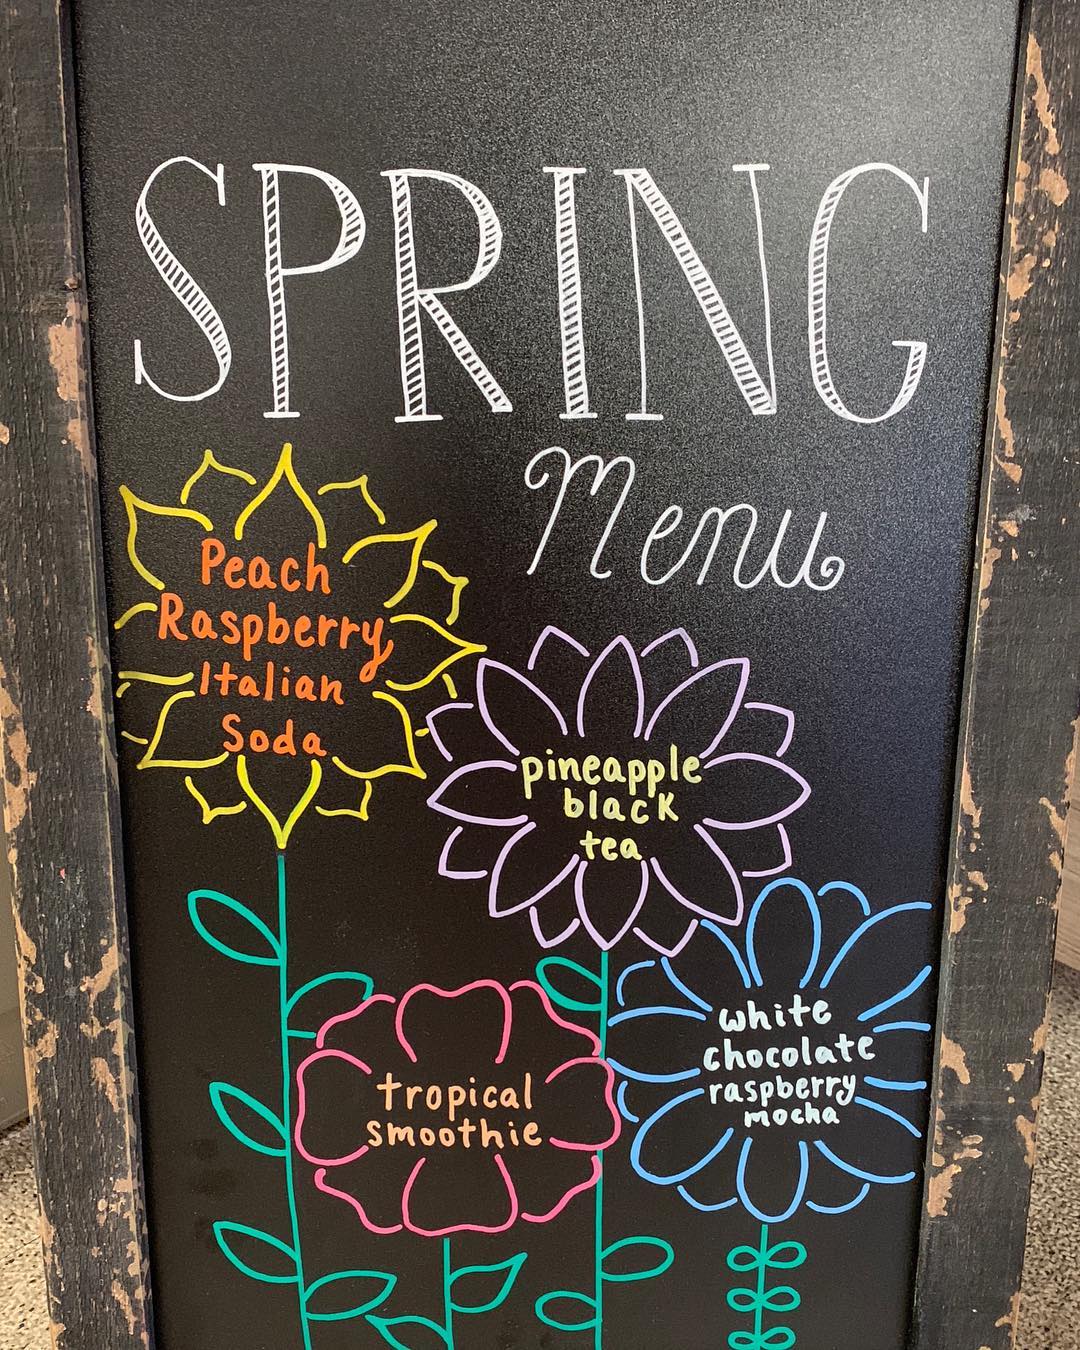 SPRING
Menu
Peach
Raspberry
Italian
Soda
pineapple
black
tea
white
chocolate
raspberry
mocha
tropical
smoothie